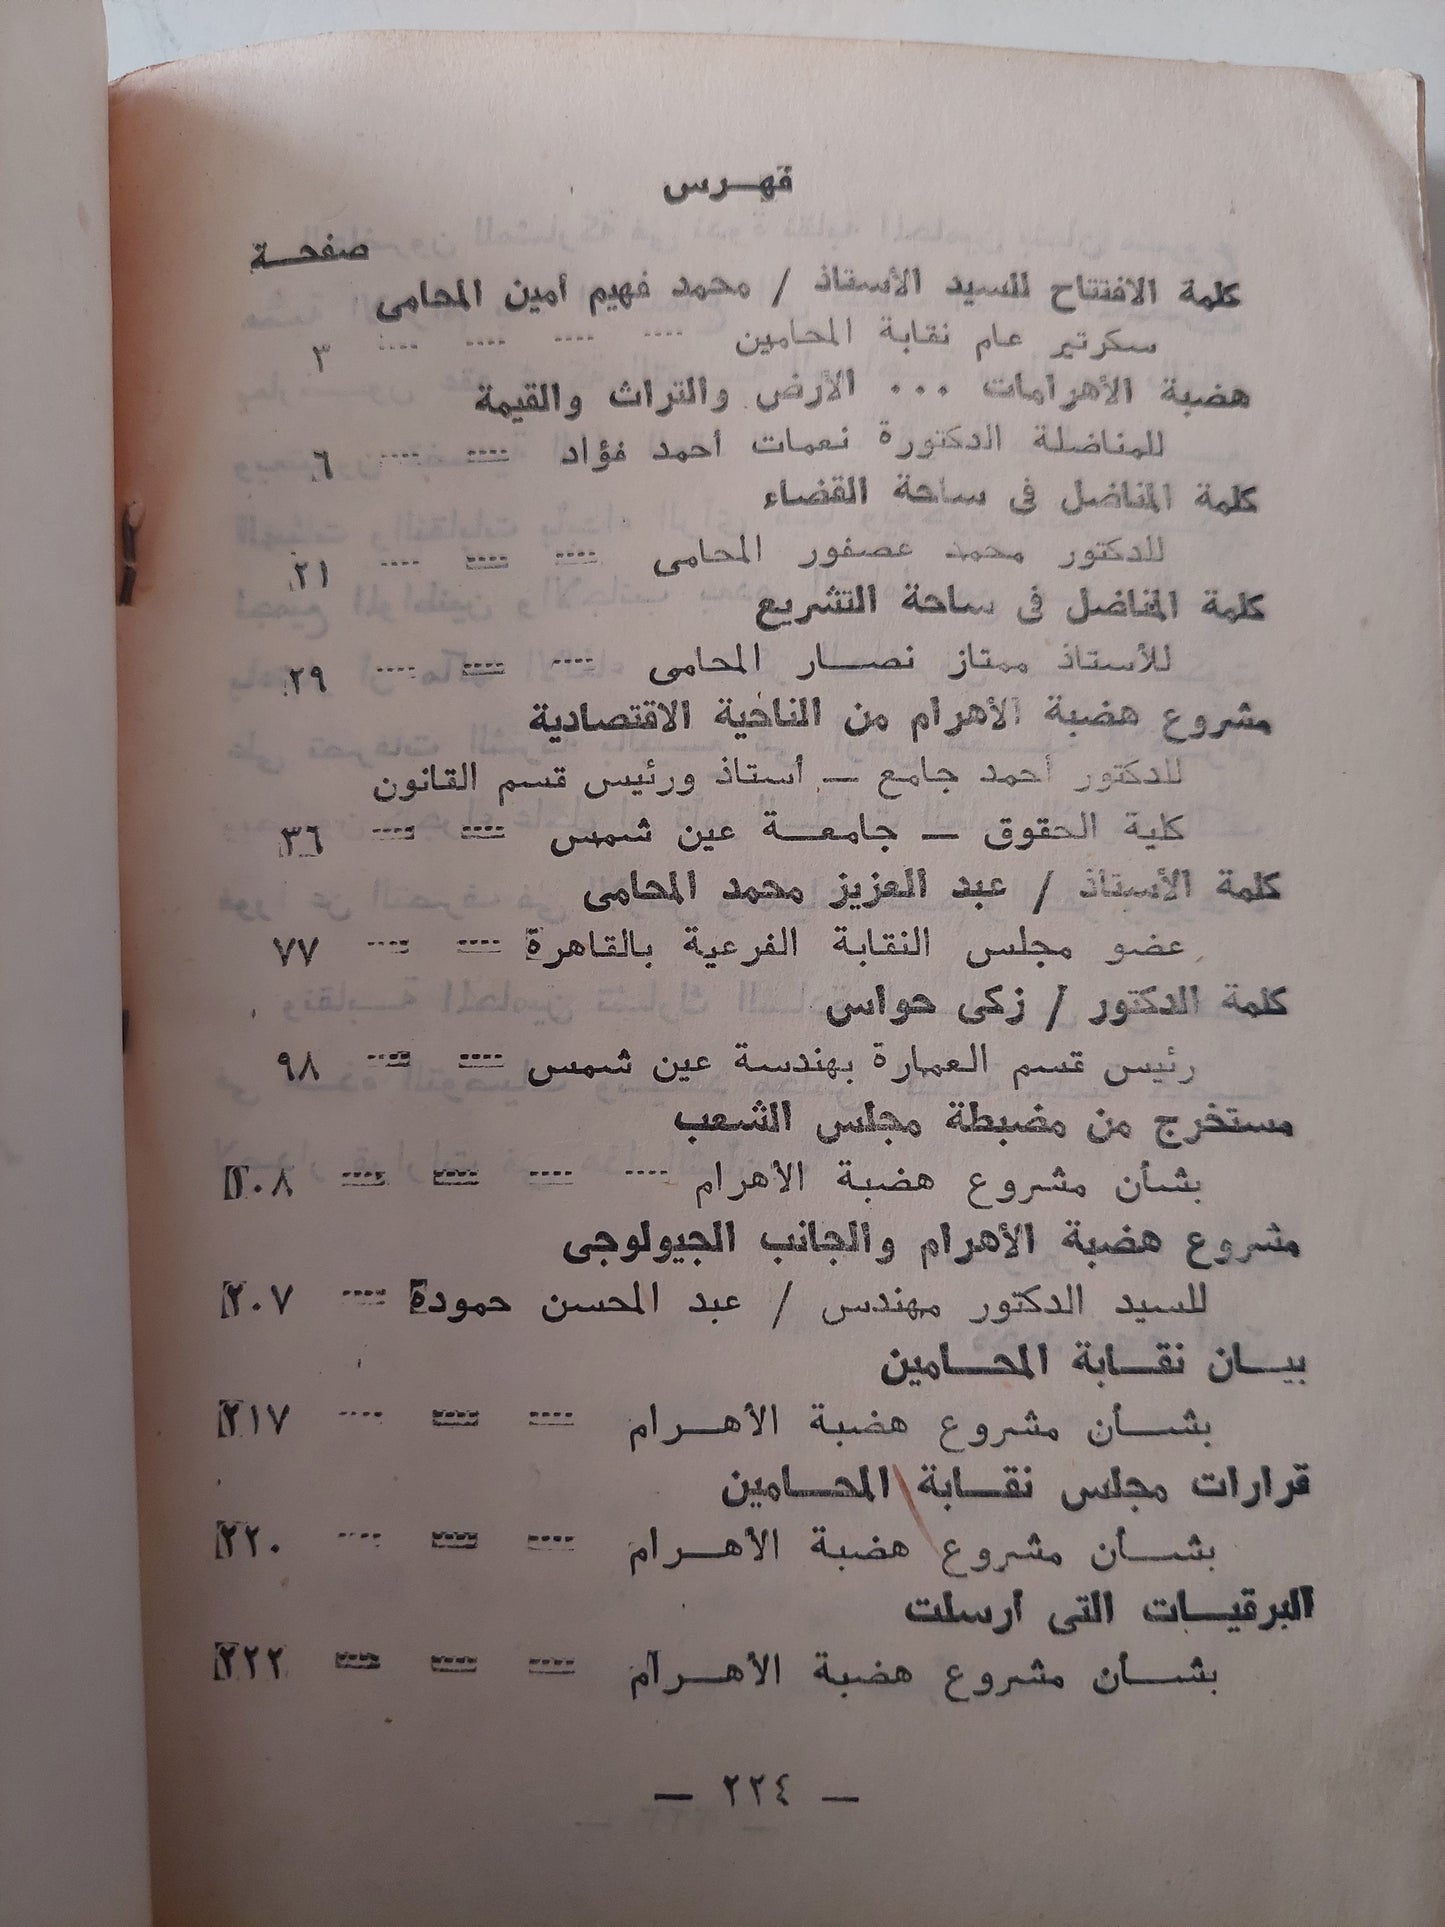 فهـرس
صفحـة
كلمة الافتتاح للسيد الأستاذ / محمد فهيم أمين المحامى
سكرتير عام نقابة المحامين ٣
هضبة الأهرامات ... الأرض والتراث والقيمة
للمناضلة الدكتورة نعمات أحمد فؤاد ٦
كلمة المناضل فى ساحة القضاء
للدكتور محمد عصفور المحامى ٢١
كلمة المناضل فى ساحة التشريع
للأستاذ ممتاز نصـــار المحامى ٢٩
مشروع هضبة الأهرام من الناحية الاقتصادية
للدكتور أحمد جامع — أستاذ ورئيس قسم القانون
كلية الحقوق — جامعـــة عين شمس ٣٦
كلمة الأستاذ / عبد العزيز محمد المحامى
عضو مجلس النقابة الفرعية بالقاهرة ٧٧
كلمة الدكتور / زكى حواس
رئيس قسم العمارة بهندسة عين شمس ٩٨
مستخرج من مضبطة مجلس الشعب
بشأن مشروع هضبة الأهرام ١٠٨
مشروع هضبة الأهرام والجانب الجيولوجى
للسيد الدكتور مهندس / عبد المحسن حمودة ٢٠٧
بيـــان نقـــابة المحـــامين
بشـــأن مشروع هضبة الأهـــرام ٢١٧
قرارات مجلس نقـــابة المحـــامين
بشـــأن مشروع هضبة الأهـــرام ٢٢٠
البرقيـــات التى أرسلت
بشـــأن مشروع هضبة الأهـــرام ٢٢٢
— ٢٢٤ —